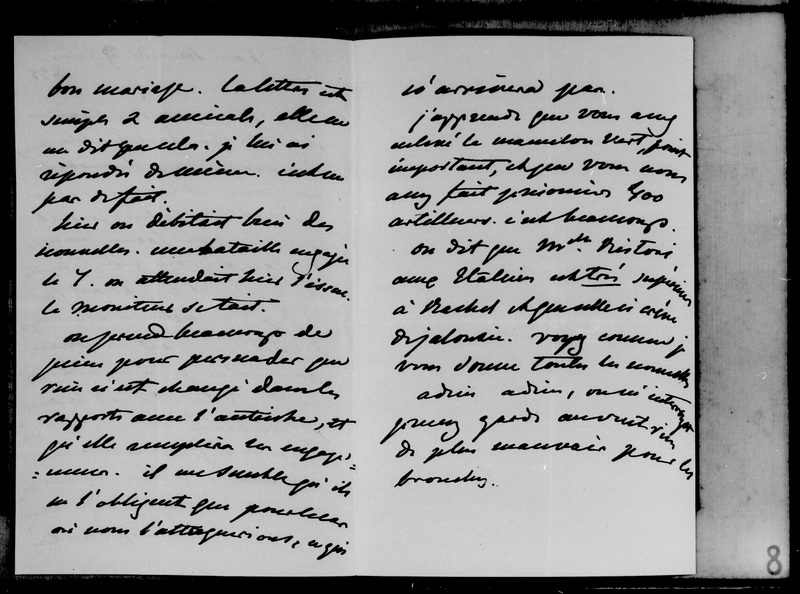 bon mariage. la lettre est
simple & amicale, elle ne
m dit que cela. je lui ai
répondu de même. c'est un
pas de fait.
hier on débitait bien des
nouvelles. une bataille engagée
le 7. on attendait hier l'issue.
le moniteur se tait.
on prend beaucoup de
peine pour persuader que
rien n'est changé dans les
rapports avec l'autriche, et
qu'elle remplira ses engage=
=mens. il me semble qu'ils
ne l'obligent que pour le cas
où nous l'attaquerions, ce qui
n'arrivera pas.
j'apprends que vous avez
enlevé le mamelon vert, point
important, et que vous nous
avez fait prisonniers 400
artilleurs. c'est beaucoup.
on dit que Mde Ristori
aux Italiens est très supérieure
à Rachel et que celle ci crève
de jalousie. voyez comme je
vous donne toutes les nouvelles
adieu adieu,
prenez garde au vent rien
de plus mauvais pour les
bronches.
8